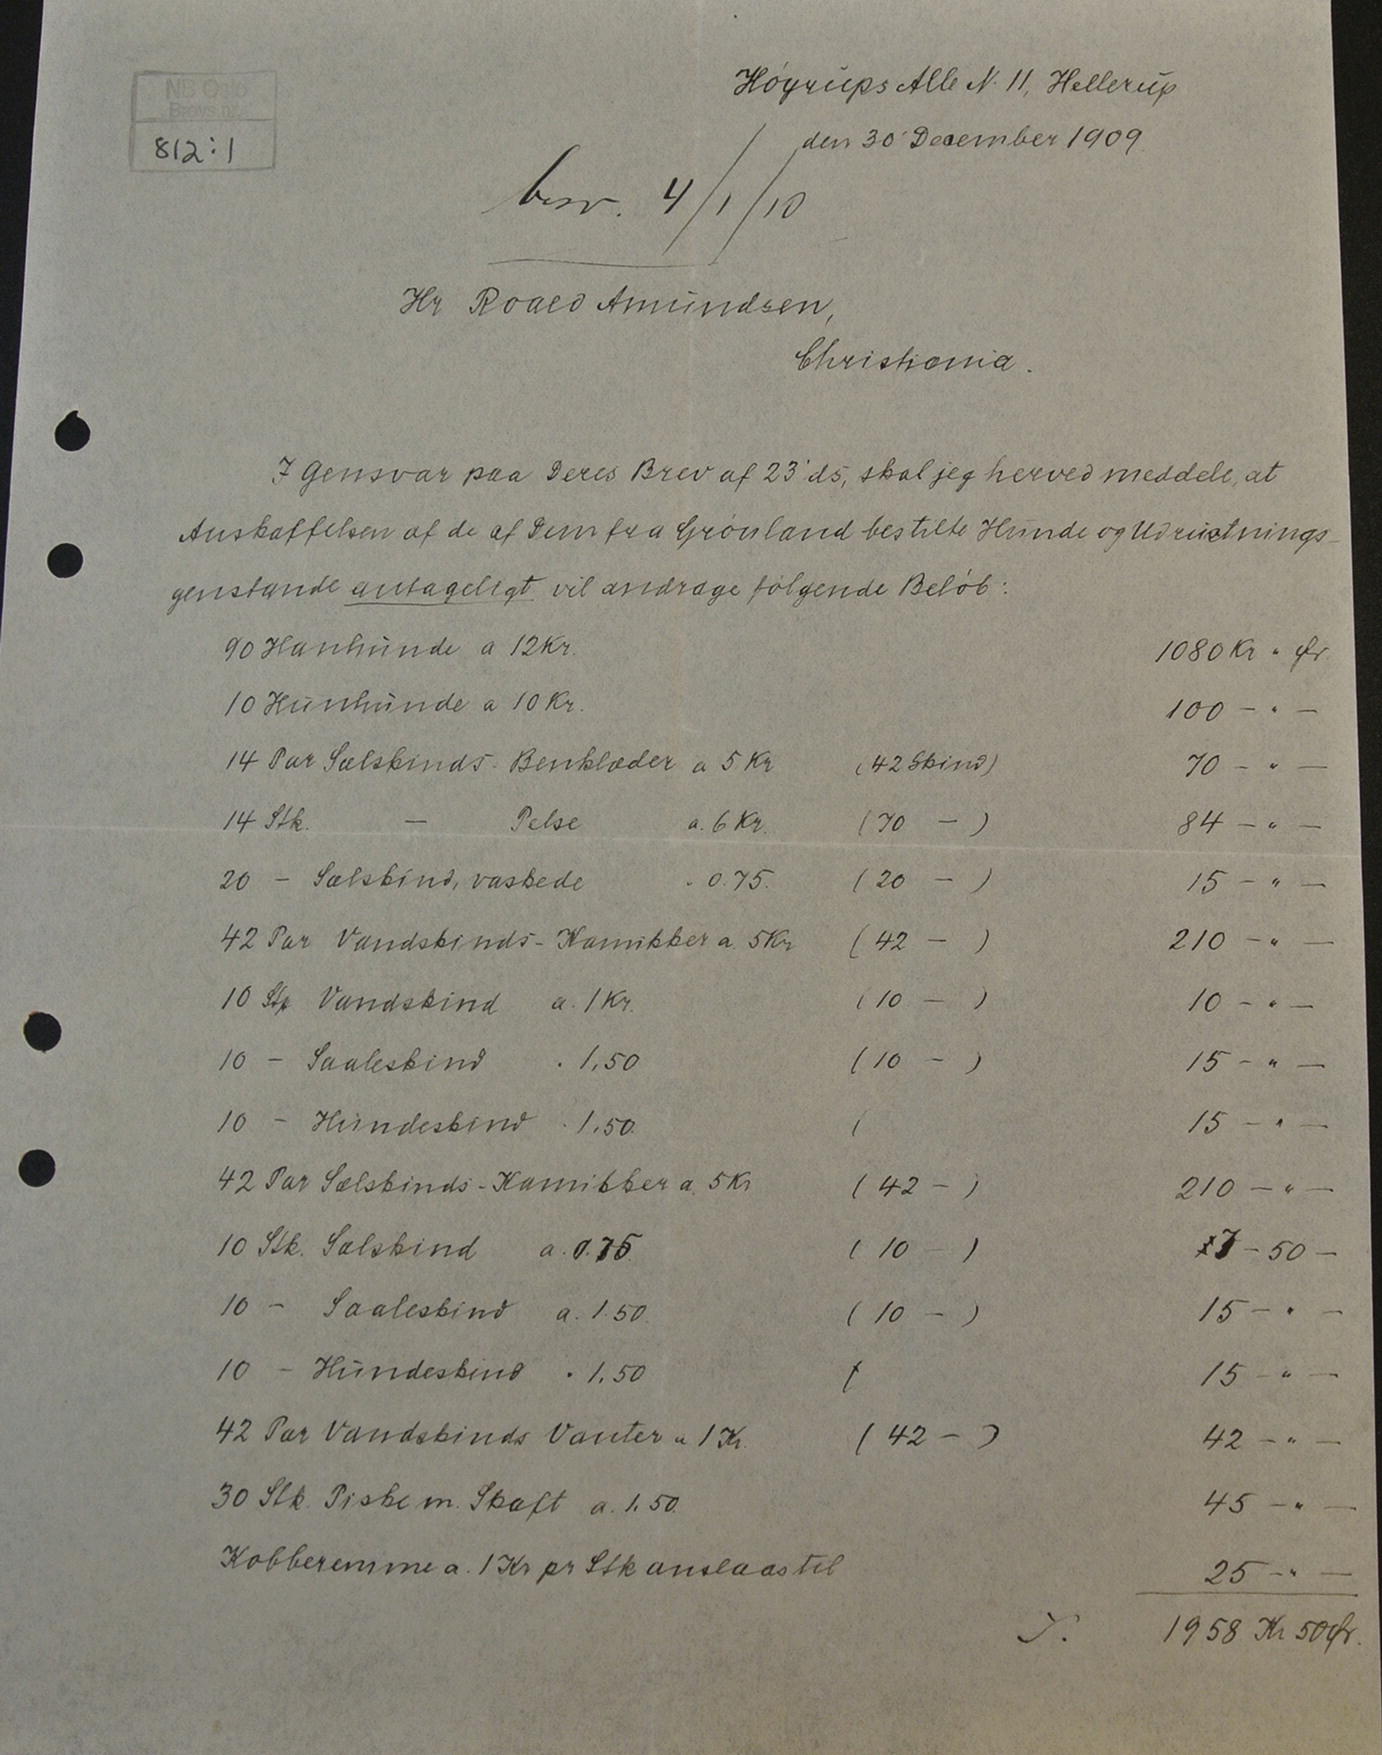 NB O
Brevs nr.
812:1
Höyrups Alle N. 11, Hellerup
den 30' December 1909.
besv. 4/1/10
Hr Roald Amundsen,
Christiania.
I Gensvar paa Deres Brev af 23' ds, skal jeg herved meddele, at
Anskaffelsen af de af Dem fra Grönland bestilte Hunde og Udrustnings-
genstande antageligt vil andrage fölgende Belöb:
90 Hanhunde a 12 Kr. 1080 Kr " Ør.
10 Hunhunde a 10 Kr. 100 — " —
14 Par Sælskinds- Benklæder a 5 Kr (42 Skind) 70 — " —
14 Stk. — Pelse a. 6 Kr. (70 — ) 84 — " —
20 — Sælskind, vaskede . 0.75. (20 — ) 15 — " —
42 Par Vandskinds- Kamikker a. 5 Kr (42 — ) 210 — " —
10 Stk Vandskind a. 1 Kr. (10 — ) 10 — " —
10 — Saaleskind . 1,50 (10 — ) 15 — " —
10 — Hundeskind . 1,50. ( 15 — " —
42 Par Sælskinds-Kamikker a. 5 Kr (42 — ) 210 — " —
10 Stk. Sælskind a. 0.75 (10 — ) 7 — 50 —
10 — Saaleskind a. 1.50. (10 — ) 15 — " —
10 — Hundeskind . 1.50 ( 15 — " —
42 Par Vandskinds Vanter a 1 Kr. (42 — ) 42 — " —
30 Stk. Piske m. Skaft a. 1.50. 45 — " —
Kobberemme a. 1 Kr pr Stk anslaas til 25 — " —
1958 Kr 50 Ør.